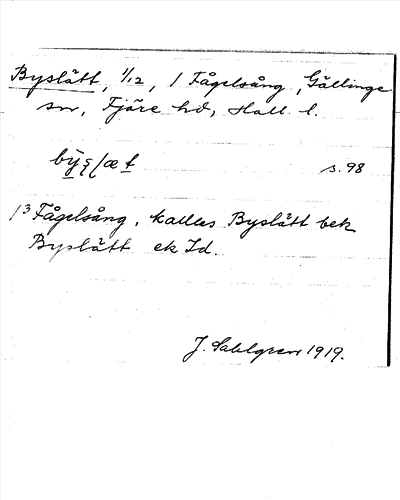 Byslätt, 1/12, 1 Fågelsång, Gällinge
sn, Fjäre hd, Hall. l.
s. 98
1³ Fågelsång, kallas Byslätt bek
Byslätt ek Id.
J. Sahlgren 1919.